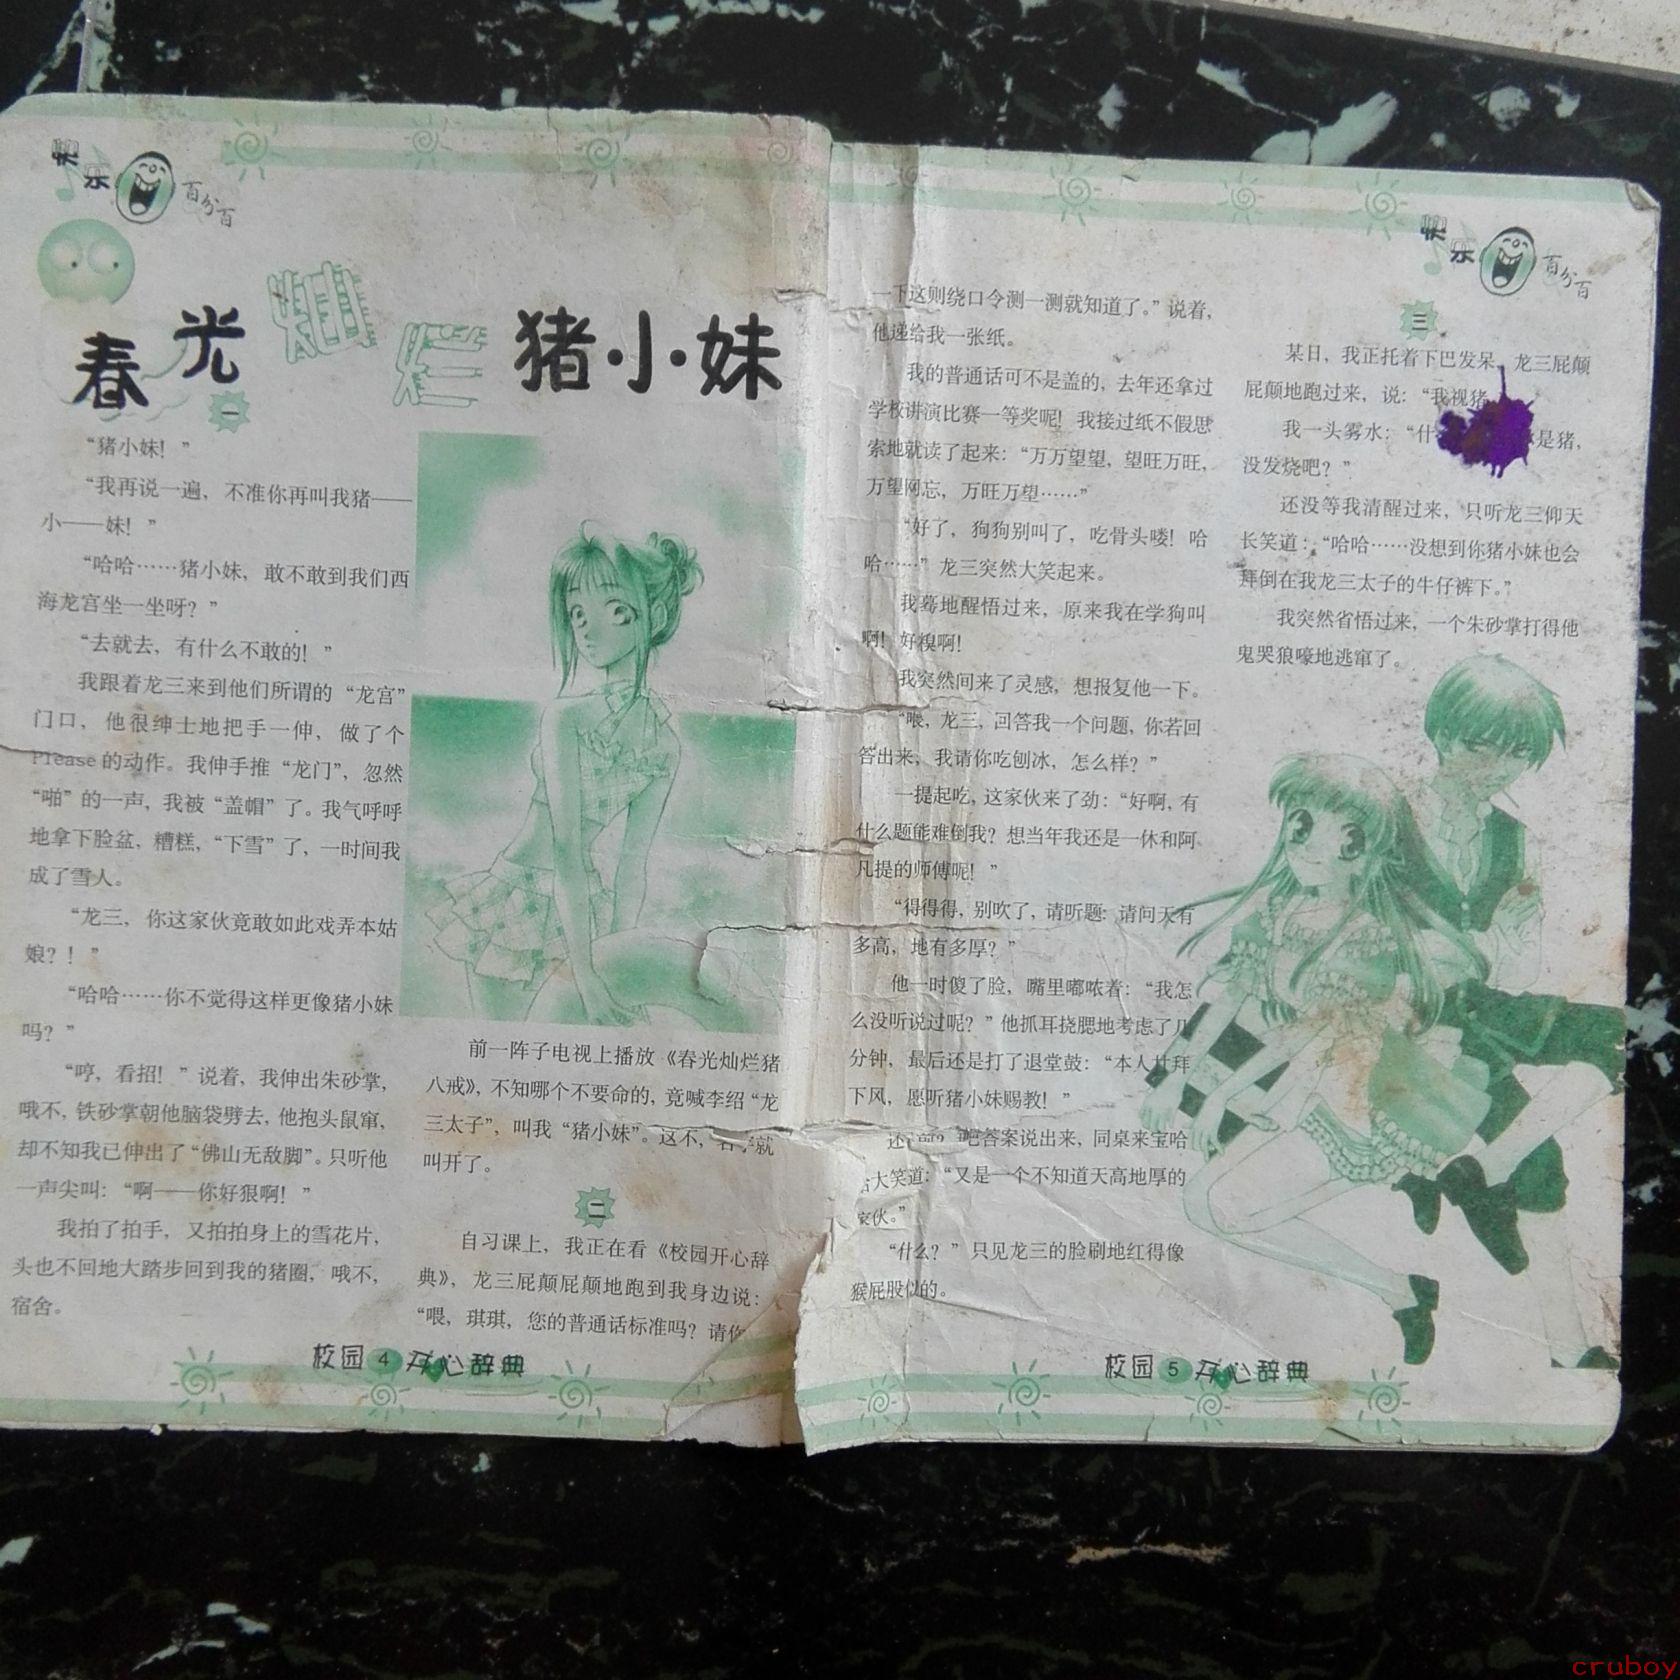 快乐百分百
春光灿烂猪·小·妹
一
“猪小妹！”
“我再说一遍，不准你再叫我猪——
小——妹！”
“哈哈……猪小妹，敢不敢到我们西
海龙宫坐一坐呀？”
“去就去，有什么不敢的！”
我跟着龙三来到他们所谓的“龙宫”
门口，他很绅士地把手一伸，做了个
Please的动作。我伸手推“龙门”，忽然
“啪”的一声，我被“盖帽”了。我气呼呼
地拿下脸盆，糟糕，“下雪”了，一时间我
成了雪人。
“龙三，你这家伙竟敢如此戏弄本姑
娘？！”
“哈哈……你不觉得这样更像猪小妹
吗？”
“哼，看招！”说着，我伸出朱砂掌，
哦不，铁砂掌朝他脑袋劈去，他抱头鼠窜，
却不知我已伸出了“佛山无敌脚”。只听他
一声尖叫：“啊——你好狠啊！”
我拍了拍手，又拍拍身上的雪花片，
头也不回地大踏步回到我的猪圈，哦不，
宿舍。
前一阵子电视上播放《春光灿烂猪
八戒》，不知哪个不要命的，竟喊李绍“龙
三太子”，叫我“猪小妹”。这不，名字就
叫开了。
二
自习课上，我正在看《校园开心辞
典》，龙三屁颠屁颠地跑到我身边说：
“喂，琪琪，您的普通话标准吗？请你
校园 4 开心辞典
快乐百分百
一下这则绕口令测一测就知道了。”说着，
他递给我一张纸。
我的普通话可不是盖的，去年还拿过
学校讲演比赛一等奖呢！我接过纸不假思
索地就读了起来：“万万望望，望旺万旺，
万望网忘，万旺万望……”
“好了，狗狗别叫了，吃骨头喽！哈
哈……”龙三突然大笑起来。
我蓦地醒悟过来，原来我在学狗叫
啊！好糗啊！
我突然间来了灵感，想报复他一下。
“喂，龙三，回答我一个问题，你若回
答出来，我请你吃刨冰，怎么样？”
一提起吃，这家伙来了劲：“好啊，有
什么题能难倒我？想当年我还是一休和阿
凡提的师傅呢！”
“得得得，别吹了，请听题：请问天有
多高，地有多厚？”
他一时傻了脸，嘴里嘟哝着：“我怎
么没听说过呢？”他抓耳挠腮地考虑了几
分钟，最后还是打了退堂鼓：“本人甘拜
下风，愿听猪小妹赐教！”
还 把答案说出来，同桌来宝哈
哈大笑道：“又是一个不知道天高地厚的
家伙。”
“什么？”只见龙三的脸刷地红得像
猴屁股似的。
三
某日，我正托着下巴发呆，龙三屁颠
屁颠地跑过来，说：“我视猪
我一头雾水：“什 是猪，
没发烧吧？”
还没等我清醒过来，只听龙三仰天
长笑道：“哈哈……没想到你猪小妹也会
拜倒在我龙三太子的牛仔裤下。”
我突然省悟过来，一个朱砂掌打得他
鬼哭狼嚎地逃窜了。
校园 5 开心辞典
cruboy